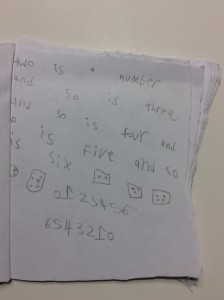 two is a number
and so is three
and so is four and
so is five and so
is six
0123456
6543210